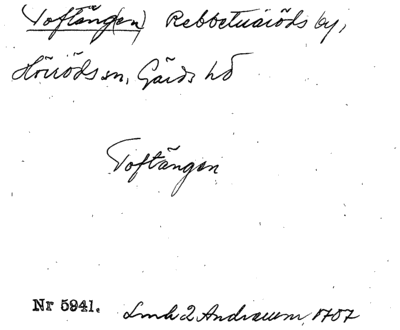 Toftäng(en) Rebbetuaröds by,
Hörröds sn, Gärds hd
Toftängen
Nr 5941. Lmh 2 Andrarum 1707